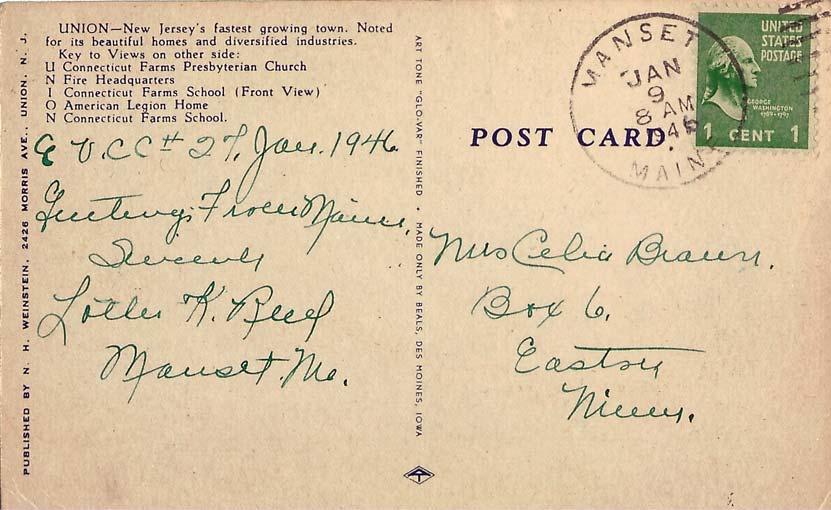 UNION—New Jersey's fastest growing town. Noted
for its beautiful homes and diversified industries.
Key to Views on other side:
U Connecticut Farms Presbyterian Church
N Fire Headquarters
I Connecticut Farms School (Front View)
O American Legion Home
N Connecticut Farms School.
V.C.C # 27, Jan. 1946
Greetings From Maine.
Sincerely
K. Reed
Manset. Me.
PUBLISHED BY N. H. WEINSTEIN, 2426 MORRIS AVE., UNION, N. J.
ART TONE "GLO-VAR" FINISHED • MADE ONLY BY BEALS, DES MOINES, IOWA
POST CARD
MANSET
JAN
9
8 AM
1946
MAINE
UNITED
STATES
POSTAGE
GEORGE
WASHINGTON
1789-1797
1 CENT 1
Mrs Celia Braun.
Box 6.
Easton
Minn.